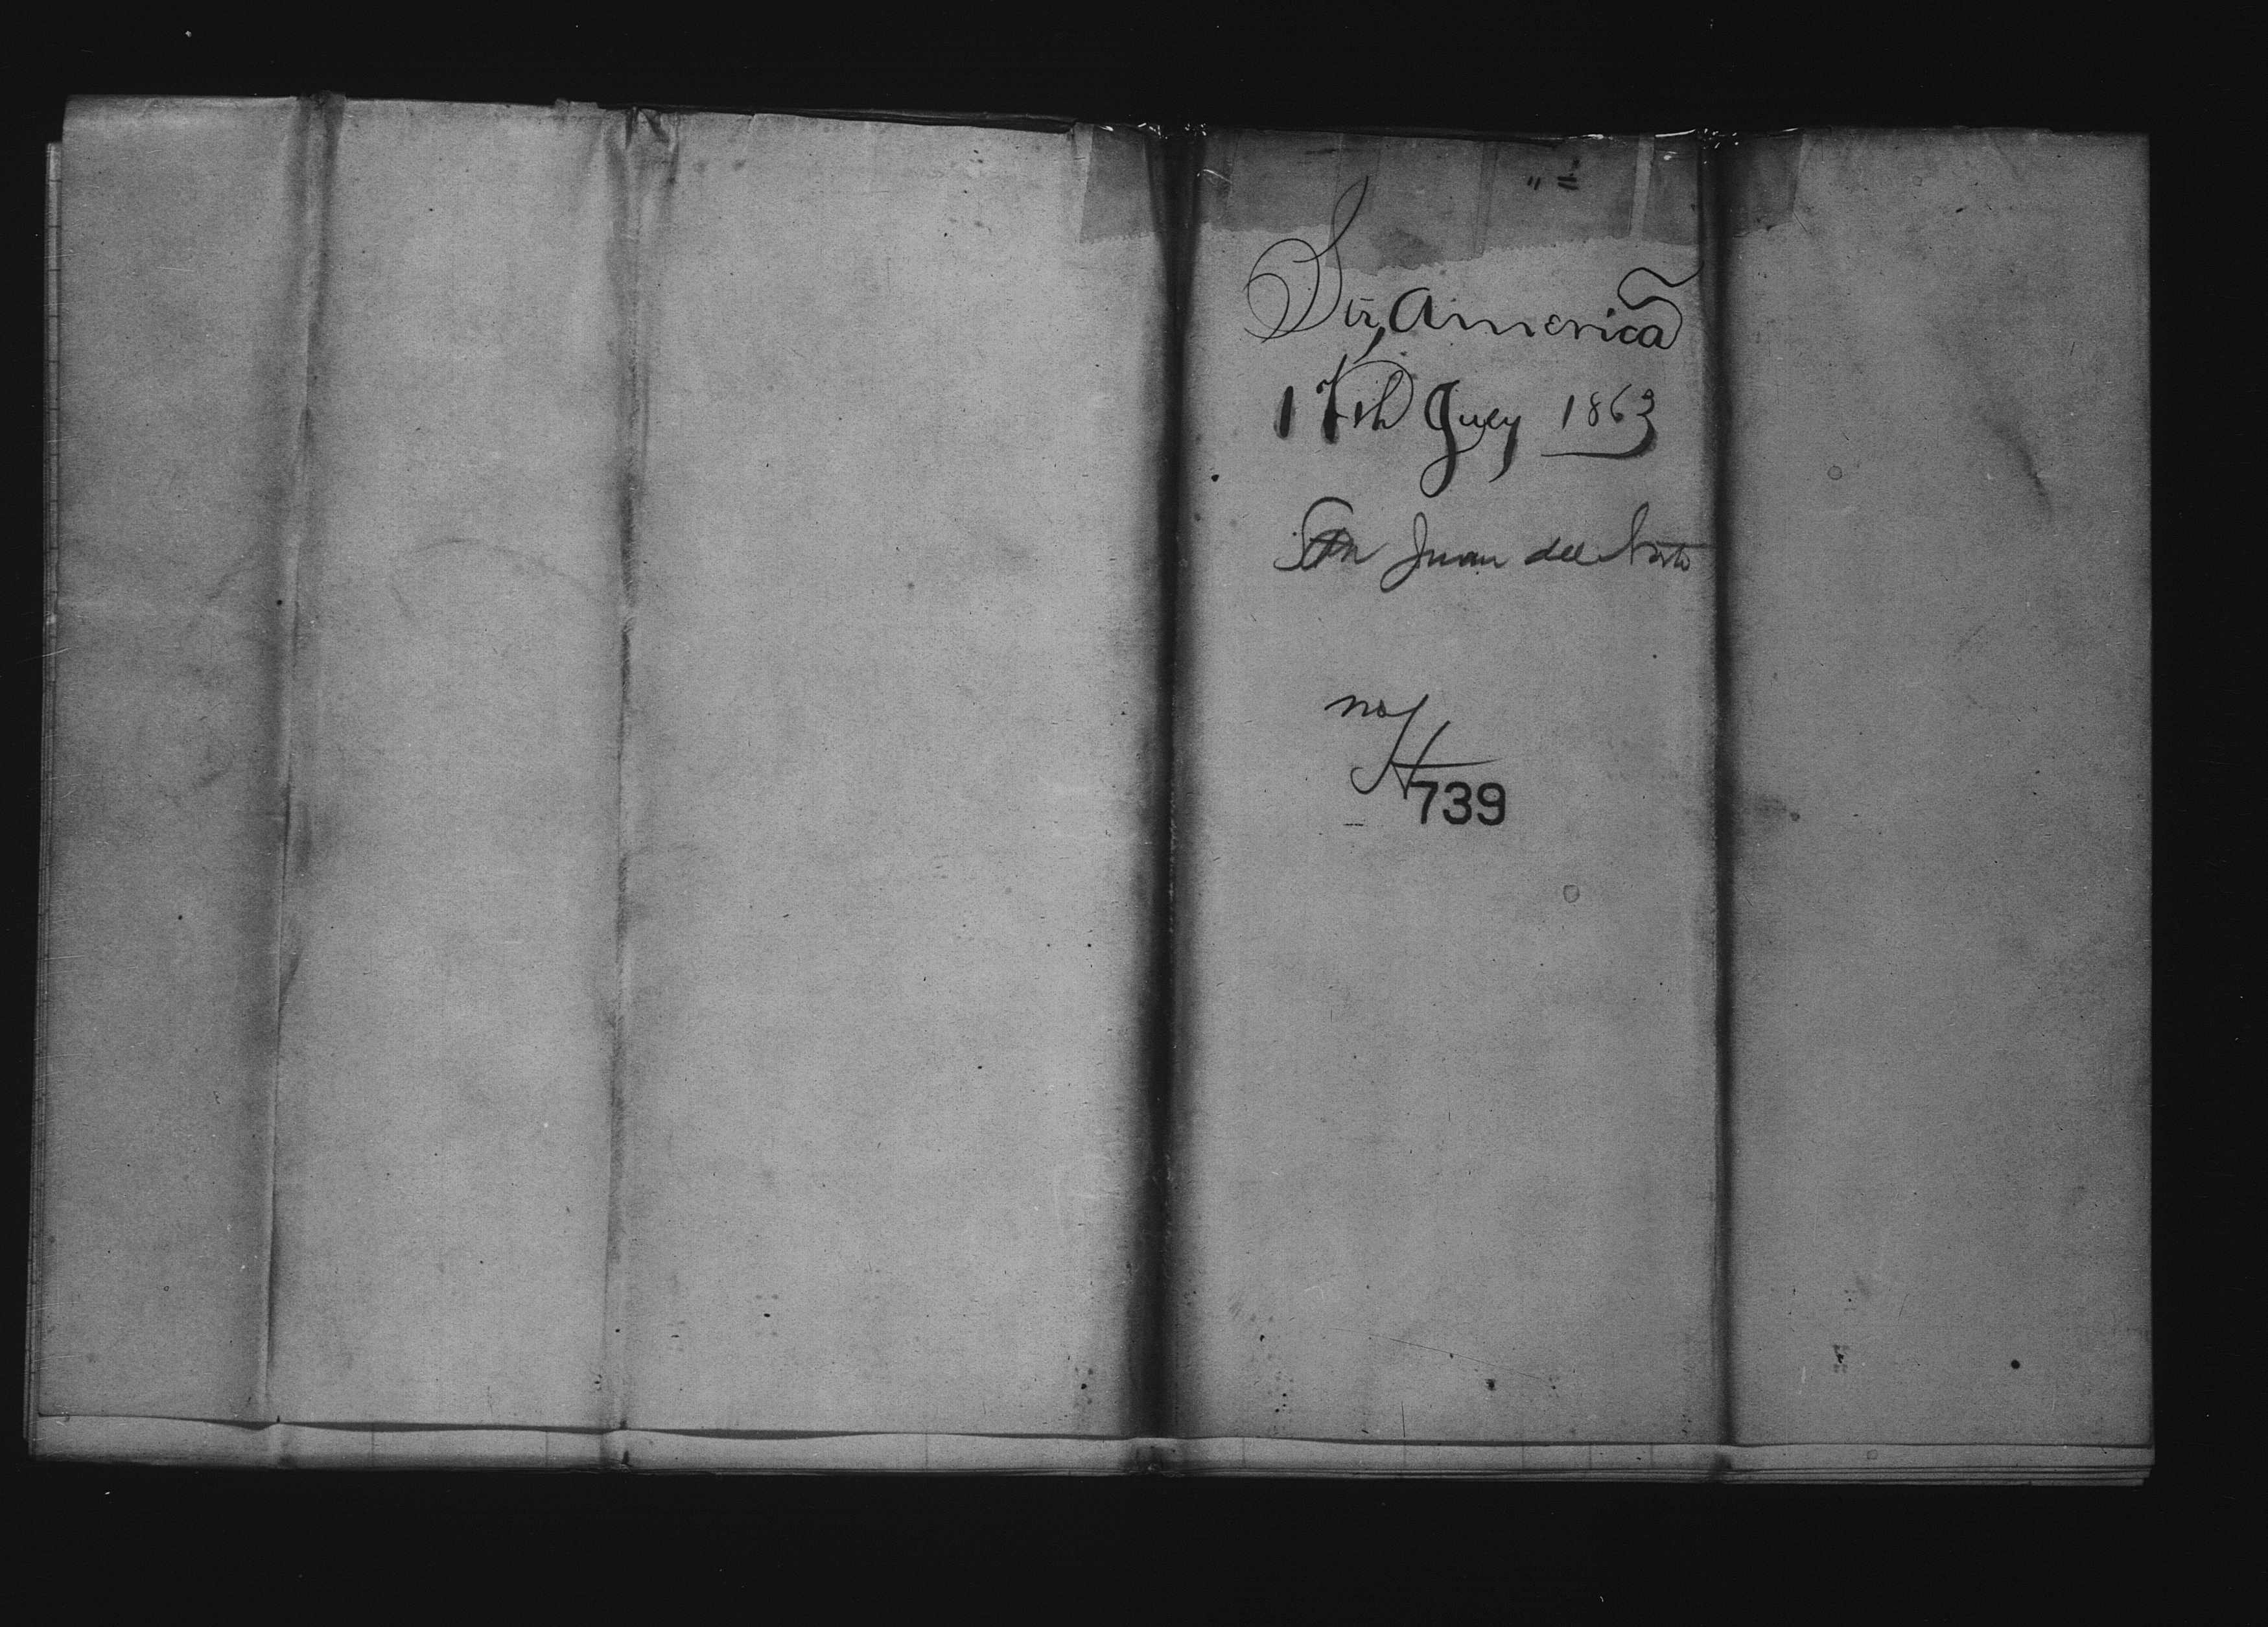 Str, America
17th July 1863
San Juan del Norte
no/
739